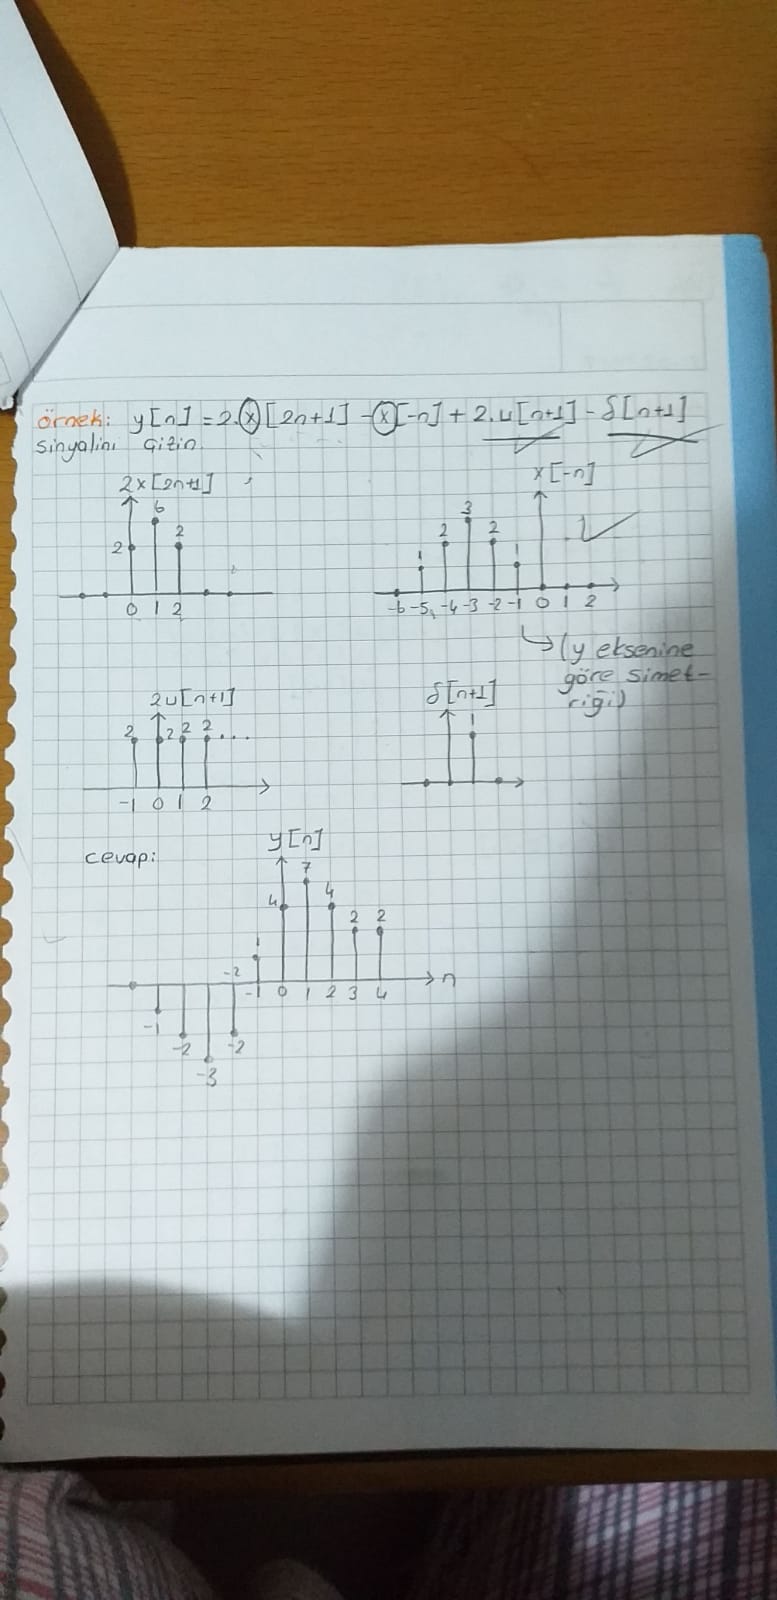 örnek: y[n] = 2.x[2n+1] - x[-n] + 2.u[n+1] - δ[n+1]
sinyalini çizin.
2x[2n+1]
x[-n]
2 6 2
0 1 2
1 2 3 2 1
-6 -5 -4 -3 -2 -1 0 1 2
(y eksenine
göre simet-
riği)
2u[n+1]
2 2 2 2 ...
-1 0 1 2
δ[n+1]
1
cevap:
y[n]
4 7 4 2 2
1
-2
-1 0 1 2 3 4 n
-1 -2 -3 -2